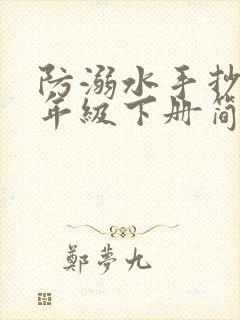 防溺水手抄
年级下册简
鄭夢九